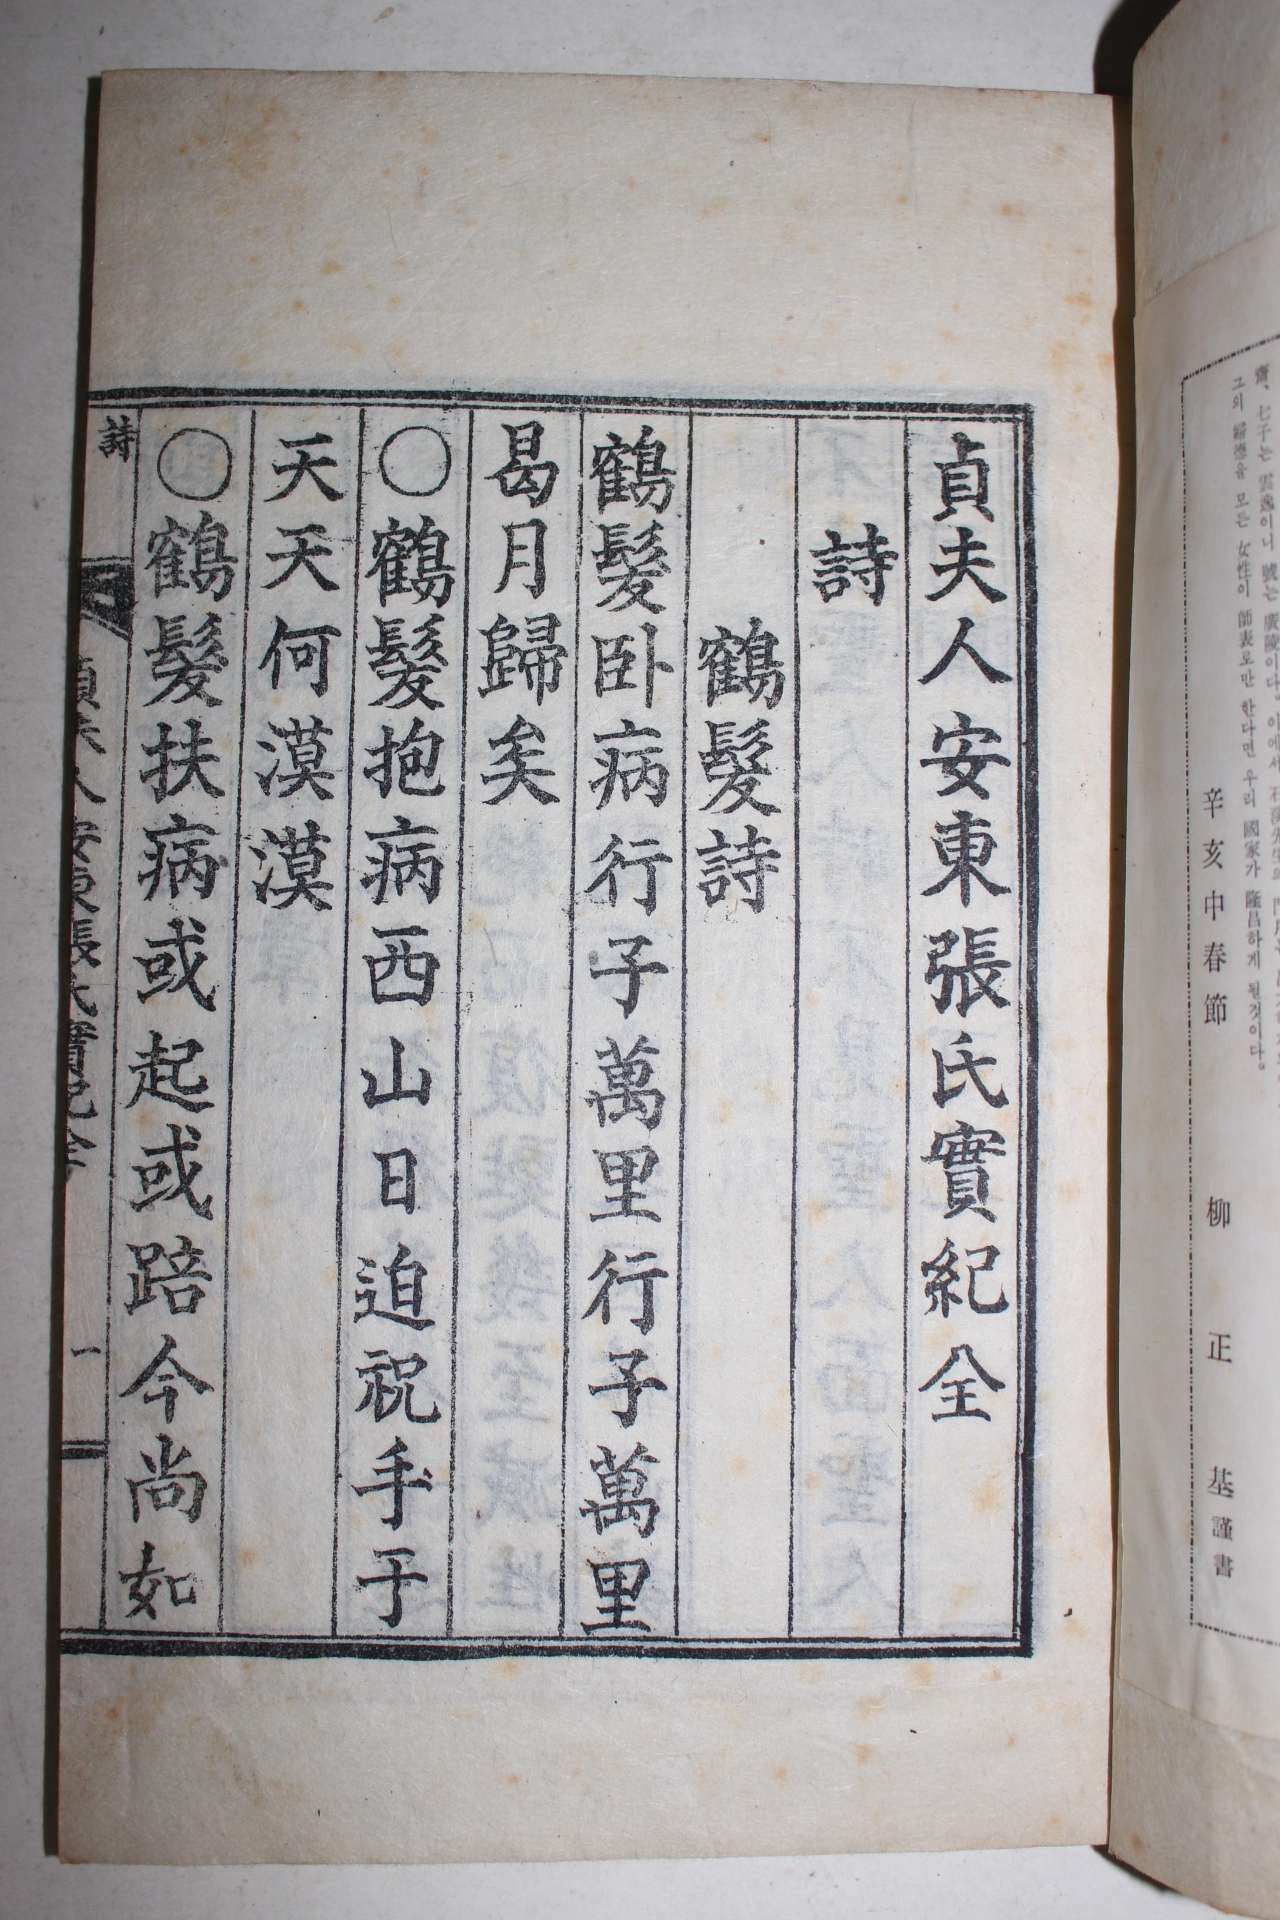 그의 歸德을 모든 女性이 師表로만 한다면 우리 國家가 隆昌하게 될것이다。
辛亥中春節 柳正基謹書
貞夫人安東張氏實紀全
詩
鶴髮詩
鶴髮卧病行子萬里行子萬里
曷月歸矣
○鶴髮抱病西山日迫祝手于
天天何漠漠
○鶴髮扶病或起或踣今尚如
詩
貞夫人安東張氏實紀全
一